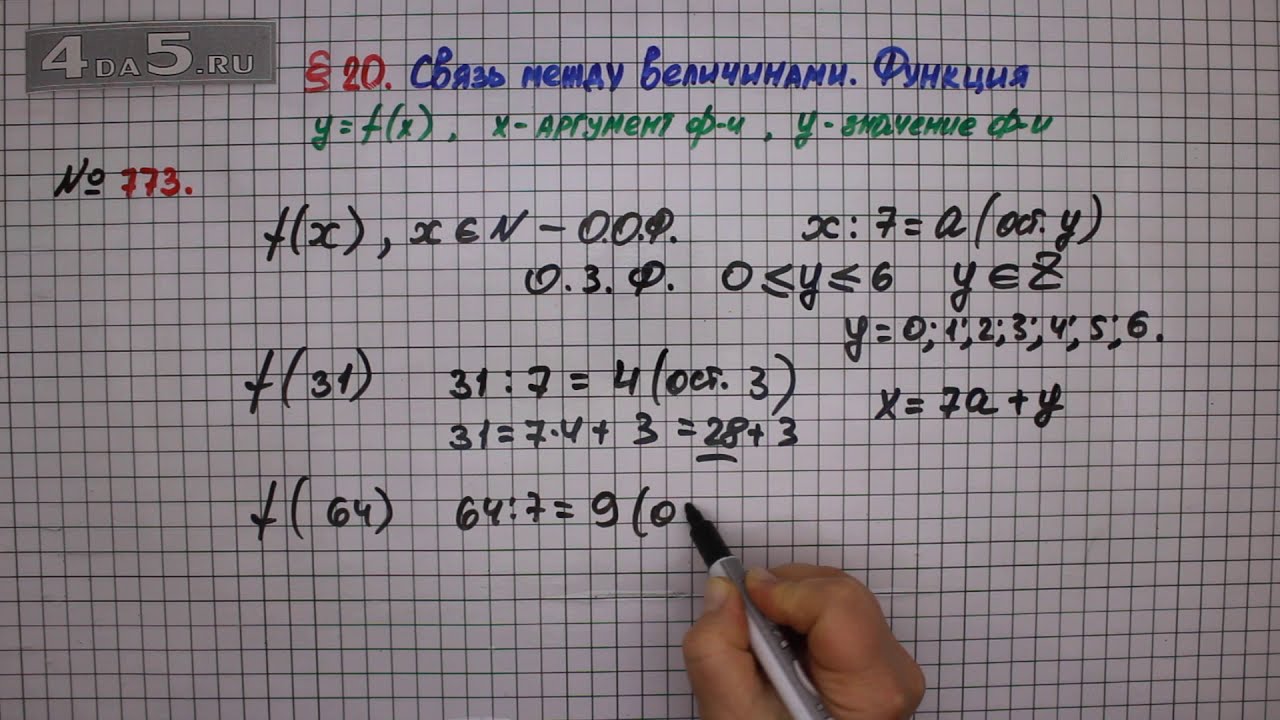 4DA5.RU
§ 20. Связь между величинами. Функция
y = f(x), x - аргумент ф-и, y - значение ф-и
№ 773.
f(x), x ∈ N - О.О.Ф. x : 7 = a (ост. y)
О.З.Ф. 0 ≤ y ≤ 6 y ∈ Z
y = 0; 1; 2; 3; 4; 5; 6.
f(31) 31 : 7 = 4 (ост. 3)
x = 7a + y
31 = 7·4 + 3 = 28 + 3
f(64) 64 : 7 = 9 (о